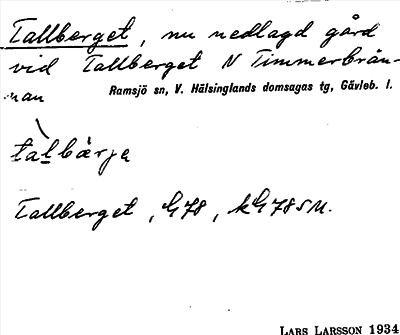 Tallberget, nu nedlagd gård
vid Tallberget N Timmerbrän-
nan Ramsjö sn, V. Hälsinglands domsagas tg, Gävleb. l.
talbärja
Tallberget, G78, kG78SM.
LARS LARSSON 1934